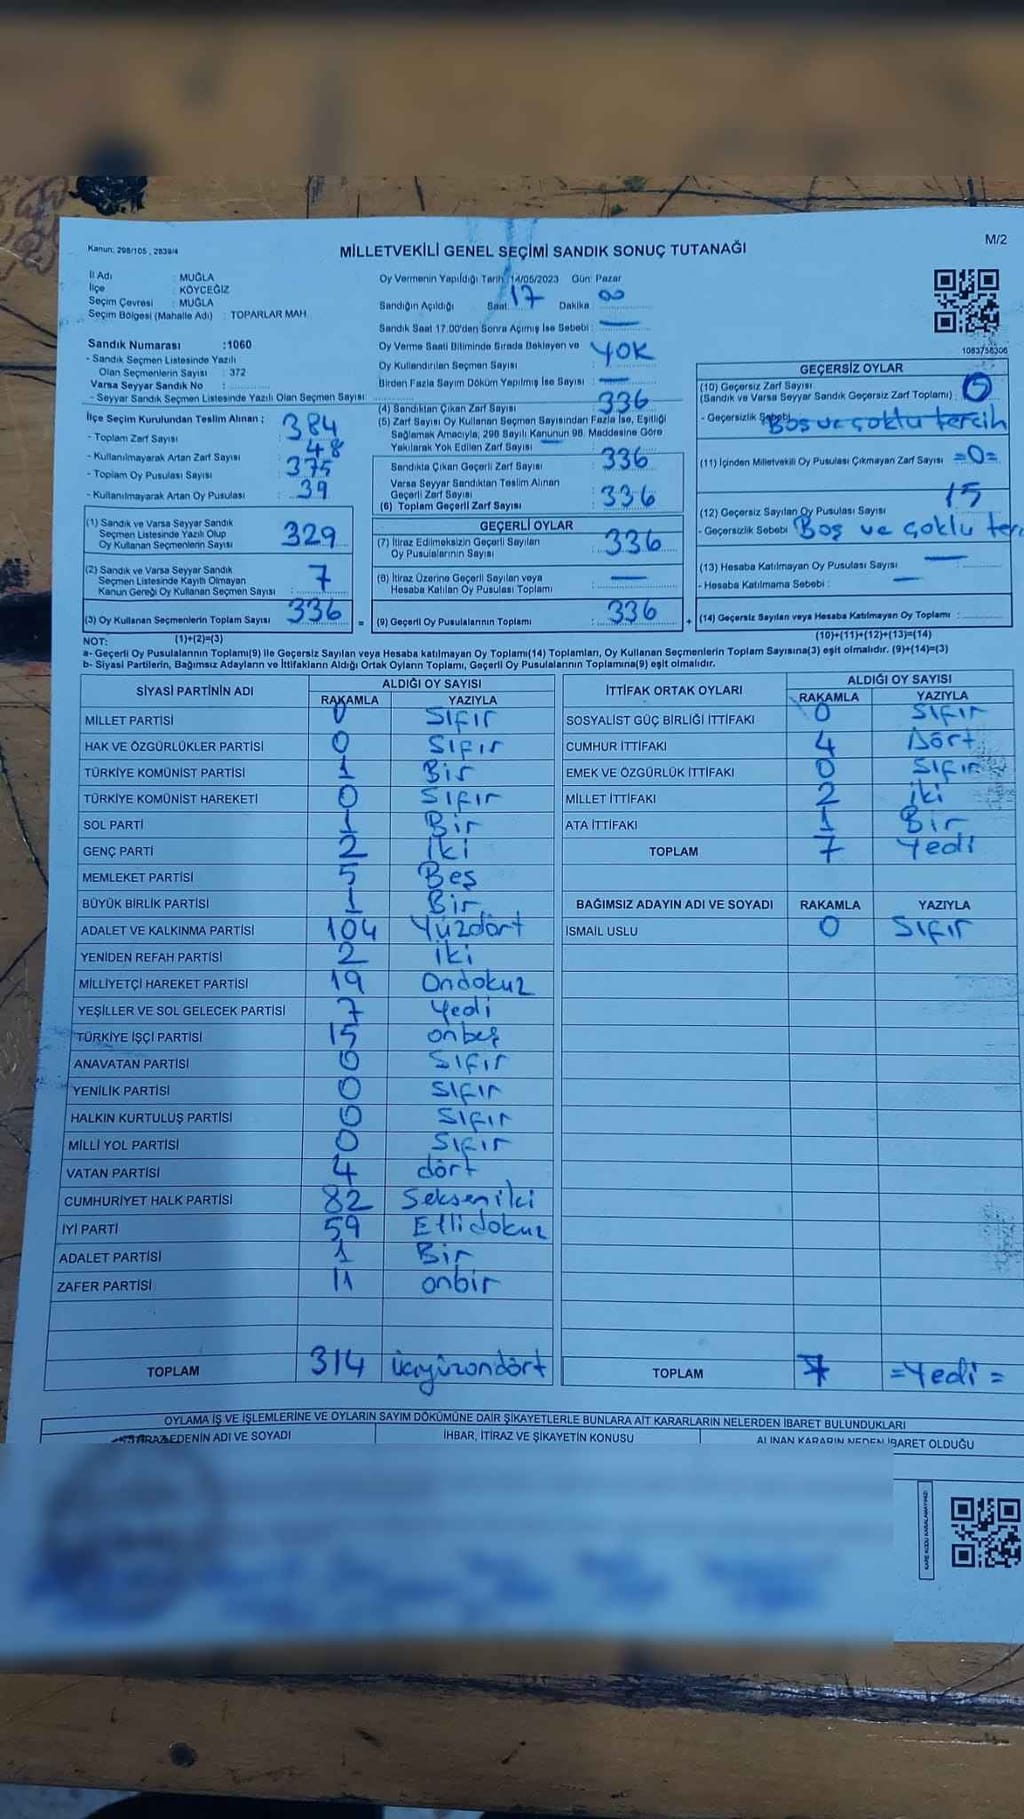 Kanun: 298/105 , 2839/4
MİLLETVEKİLİ GENEL SEÇİMİ SANDIK SONUÇ TUTANAĞI
M/2
İl Adı : MUĞLA
İlçe : KÖYCEĞİZ
Seçim Çevresi : MUĞLA
Seçim Bölgesi (Mahalle Adı) : TOPARLAR MAH.
Sandık Numarası :1060
- Sandık Seçmen Listesinde Yazılı
Olan Seçmenlerin Sayısı : 372
Varsa Seyyar Sandık No :
- Seyyar Sandık Seçmen Listesinde Yazılı Olan Seçmen Sayısı :
Oy Vermenin Yapıldığı Tarih: 14/05/2023 Gün: Pazar
Sandığın Açıldığı Saat: 17 Dakika : 00
Sandık Saat 17.00'den Sonra Açılmış İse Sebebi : —
Oy Verme Saati Bitiminde Sırada Bekleyen ve
Oy Kullandırılan Seçmen Sayısı : YOK
Birden Fazla Sayım Döküm Yapılmış İse Sayısı : —
1083758306
İlçe Seçim Kurulundan Teslim Alınan ;
- Toplam Zarf Sayısı : 384
- Kullanılmayarak Artan Zarf Sayısı : 48
- Toplam Oy Pusulası Sayısı : 375
- Kullanılmayarak Artan Oy Pusulası : 39
(1) Sandık ve Varsa Seyyar Sandık
Seçmen Listesinde Yazılı Olup
Oy Kullanan Seçmenlerin Sayısı : 329
(2) Sandık ve Varsa Seyyar Sandık
Seçmen Listesinde Kayıtlı Olmayan
Kanun Gereği Oy Kullanan Seçmen Sayısı : 7
(3) Oy Kullanan Seçmenlerin Toplam Sayısı : 336 =
(4) Sandıktan Çıkan Zarf Sayısı : 336
(5) Zarf Sayısı Oy Kullanan Seçmen Sayısından Fazla İse, Eşitliği
Sağlamak Amacıyla; 298 Sayılı Kanunun 98. Maddesine Göre
Yakılarak Yok Edilen Zarf Sayısı : —
Sandıkta Çıkan Geçerli Zarf Sayısı : 336
Varsa Seyyar Sandıktan Teslim Alınan
Geçerli Zarf Sayısı :
(6) Toplam Geçerli Zarf Sayısı : 336
GEÇERLİ OYLAR
(7) İtiraz Edilmeksizin Geçerli Sayılan
Oy Pusulalarının Sayısı : 336
(8) İtiraz Üzerine Geçerli Sayılan veya
Hesaba Katılan Oy Pusulası Toplamı : —
(9) Geçerli Oy Pusulalarının Toplamı : 336 +
GEÇERSİZ OYLAR
(10) Geçersiz Zarf Sayısı
(Sandık ve Varsa Seyyar Sandık Geçersiz Zarf Toplamı) :
- Geçersizlik Sebebi Boş ve çoklu tercih
(11) İçinden Milletvekili Oy Pusulası Çıkmayan Zarf Sayısı =0=
(12) Geçersiz Sayılan Oy Pusulası Sayısı : 15
- Geçersizlik Sebebi Boş ve çoklu
(13) Hesaba Katılmayan Oy Pusulası Sayısı : —
- Hesaba Katılmama Sebebi : —
(14) Geçersiz Sayılan veya Hesaba Katılmayan Oy Toplamı :
NOT: (1)+(2)=(3) (10)+(11)+(12)+(13)=(14)
a- Geçerli Oy Pusulalarının Toplamı(9) ile Geçersiz Sayılan veya Hesaba katılmayan Oy Toplamı(14) Toplamları, Oy Kullanan Seçmenlerin Toplam Sayısına(3) eşit olmalıdır. (9)+(14)=(3)
b- Siyasi Partilerin, Bağımsız Adayların ve İttifakların Aldığı Ortak Oyların Toplamı, Geçerli Oy Pusulalarının Toplamına(9) eşit olmalıdır.
SİYASİ PARTİNİN ADI ALDIĞI OY SAYISI
RAKAMLA YAZIYLA
MİLLET PARTİSİ 0 Sıfır
HAK VE ÖZGÜRLÜKLER PARTİSİ 0 Sıfır
TÜRKİYE KOMÜNİST PARTİSİ 1 Bir
TÜRKİYE KOMÜNİST HAREKETİ 0 Sıfır
SOL PARTİ 1 Bir
GENÇ PARTİ 2 iki
MEMLEKET PARTİSİ 5 Beş
BÜYÜK BİRLİK PARTİSİ 1 Bir
ADALET VE KALKINMA PARTİSİ 104 Yüzdört
YENİDEN REFAH PARTİSİ 2 iki
MİLLİYETÇİ HAREKET PARTİSİ 19 Ondokuz
YEŞİLLER VE SOL GELECEK PARTİSİ 7 Yedi
TÜRKİYE İŞÇİ PARTİSİ 15 onbeş
ANAVATAN PARTİSİ 0 Sıfır
YENİLİK PARTİSİ 0 Sıfır
HALKIN KURTULUŞ PARTİSİ 0 Sıfır
MİLLİ YOL PARTİSİ 0 Sıfır
VATAN PARTİSİ 4 dört
CUMHURİYET HALK PARTİSİ 82 Seksen iki
İYİ PARTİ 59 Elli dokuz
ADALET PARTİSİ 1 Bir
ZAFER PARTİSİ 11 onbir
TOPLAM 314 üçyüzondört
İTTİFAK ORTAK OYLARI ALDIĞI OY SAYISI
RAKAMLA YAZIYLA
SOSYALİST GÜÇ BİRLİĞİ İTTİFAKI 0 Sıfır
CUMHUR İTTİFAKI 4 Dört
EMEK VE ÖZGÜRLÜK İTTİFAKI 0 Sıfır
MİLLET İTTİFAKI 2 iki
ATA İTTİFAKI 1 Bir
TOPLAM 7 Yedi
BAĞIMSIZ ADAYIN ADI VE SOYADI RAKAMLA YAZIYLA
İSMAİL USLU 0 Sıfır
TOPLAM 7 =Yedi=
OYLAMA İŞ VE İŞLEMLERİNE VE OYLARIN SAYIM DÖKÜMÜNE DAİR ŞİKAYETLERLE BUNLARA AİT KARARLARIN NELERDEN İBARET BULUNDUKLARI
EDENİN ADI VE SOYADI
İHBAR, İTİRAZ VE ŞİKAYETİN KONUSU
ALINAN KARARIN NEDEN İBARET OLDUĞU